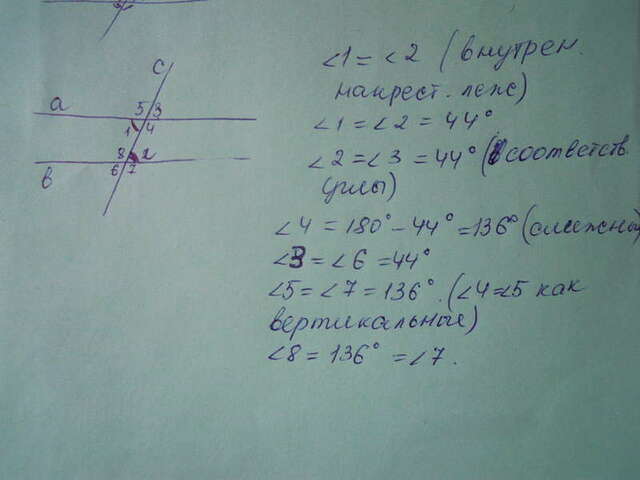 c
a
5 3
1 4
8 2
6 7
в
∠1 = ∠2 (внутрен.
накрест. леж)
∠1 = ∠2 = 44°
∠2 = ∠3 = 44° (соответств.
углы)
∠4 = 180° - 44° = 136° (смежные)
∠3 = ∠6 = 44°
∠5 = ∠7 = 136°. (∠4=∠5 как
вертикальные)
∠8 = 136° = ∠7.